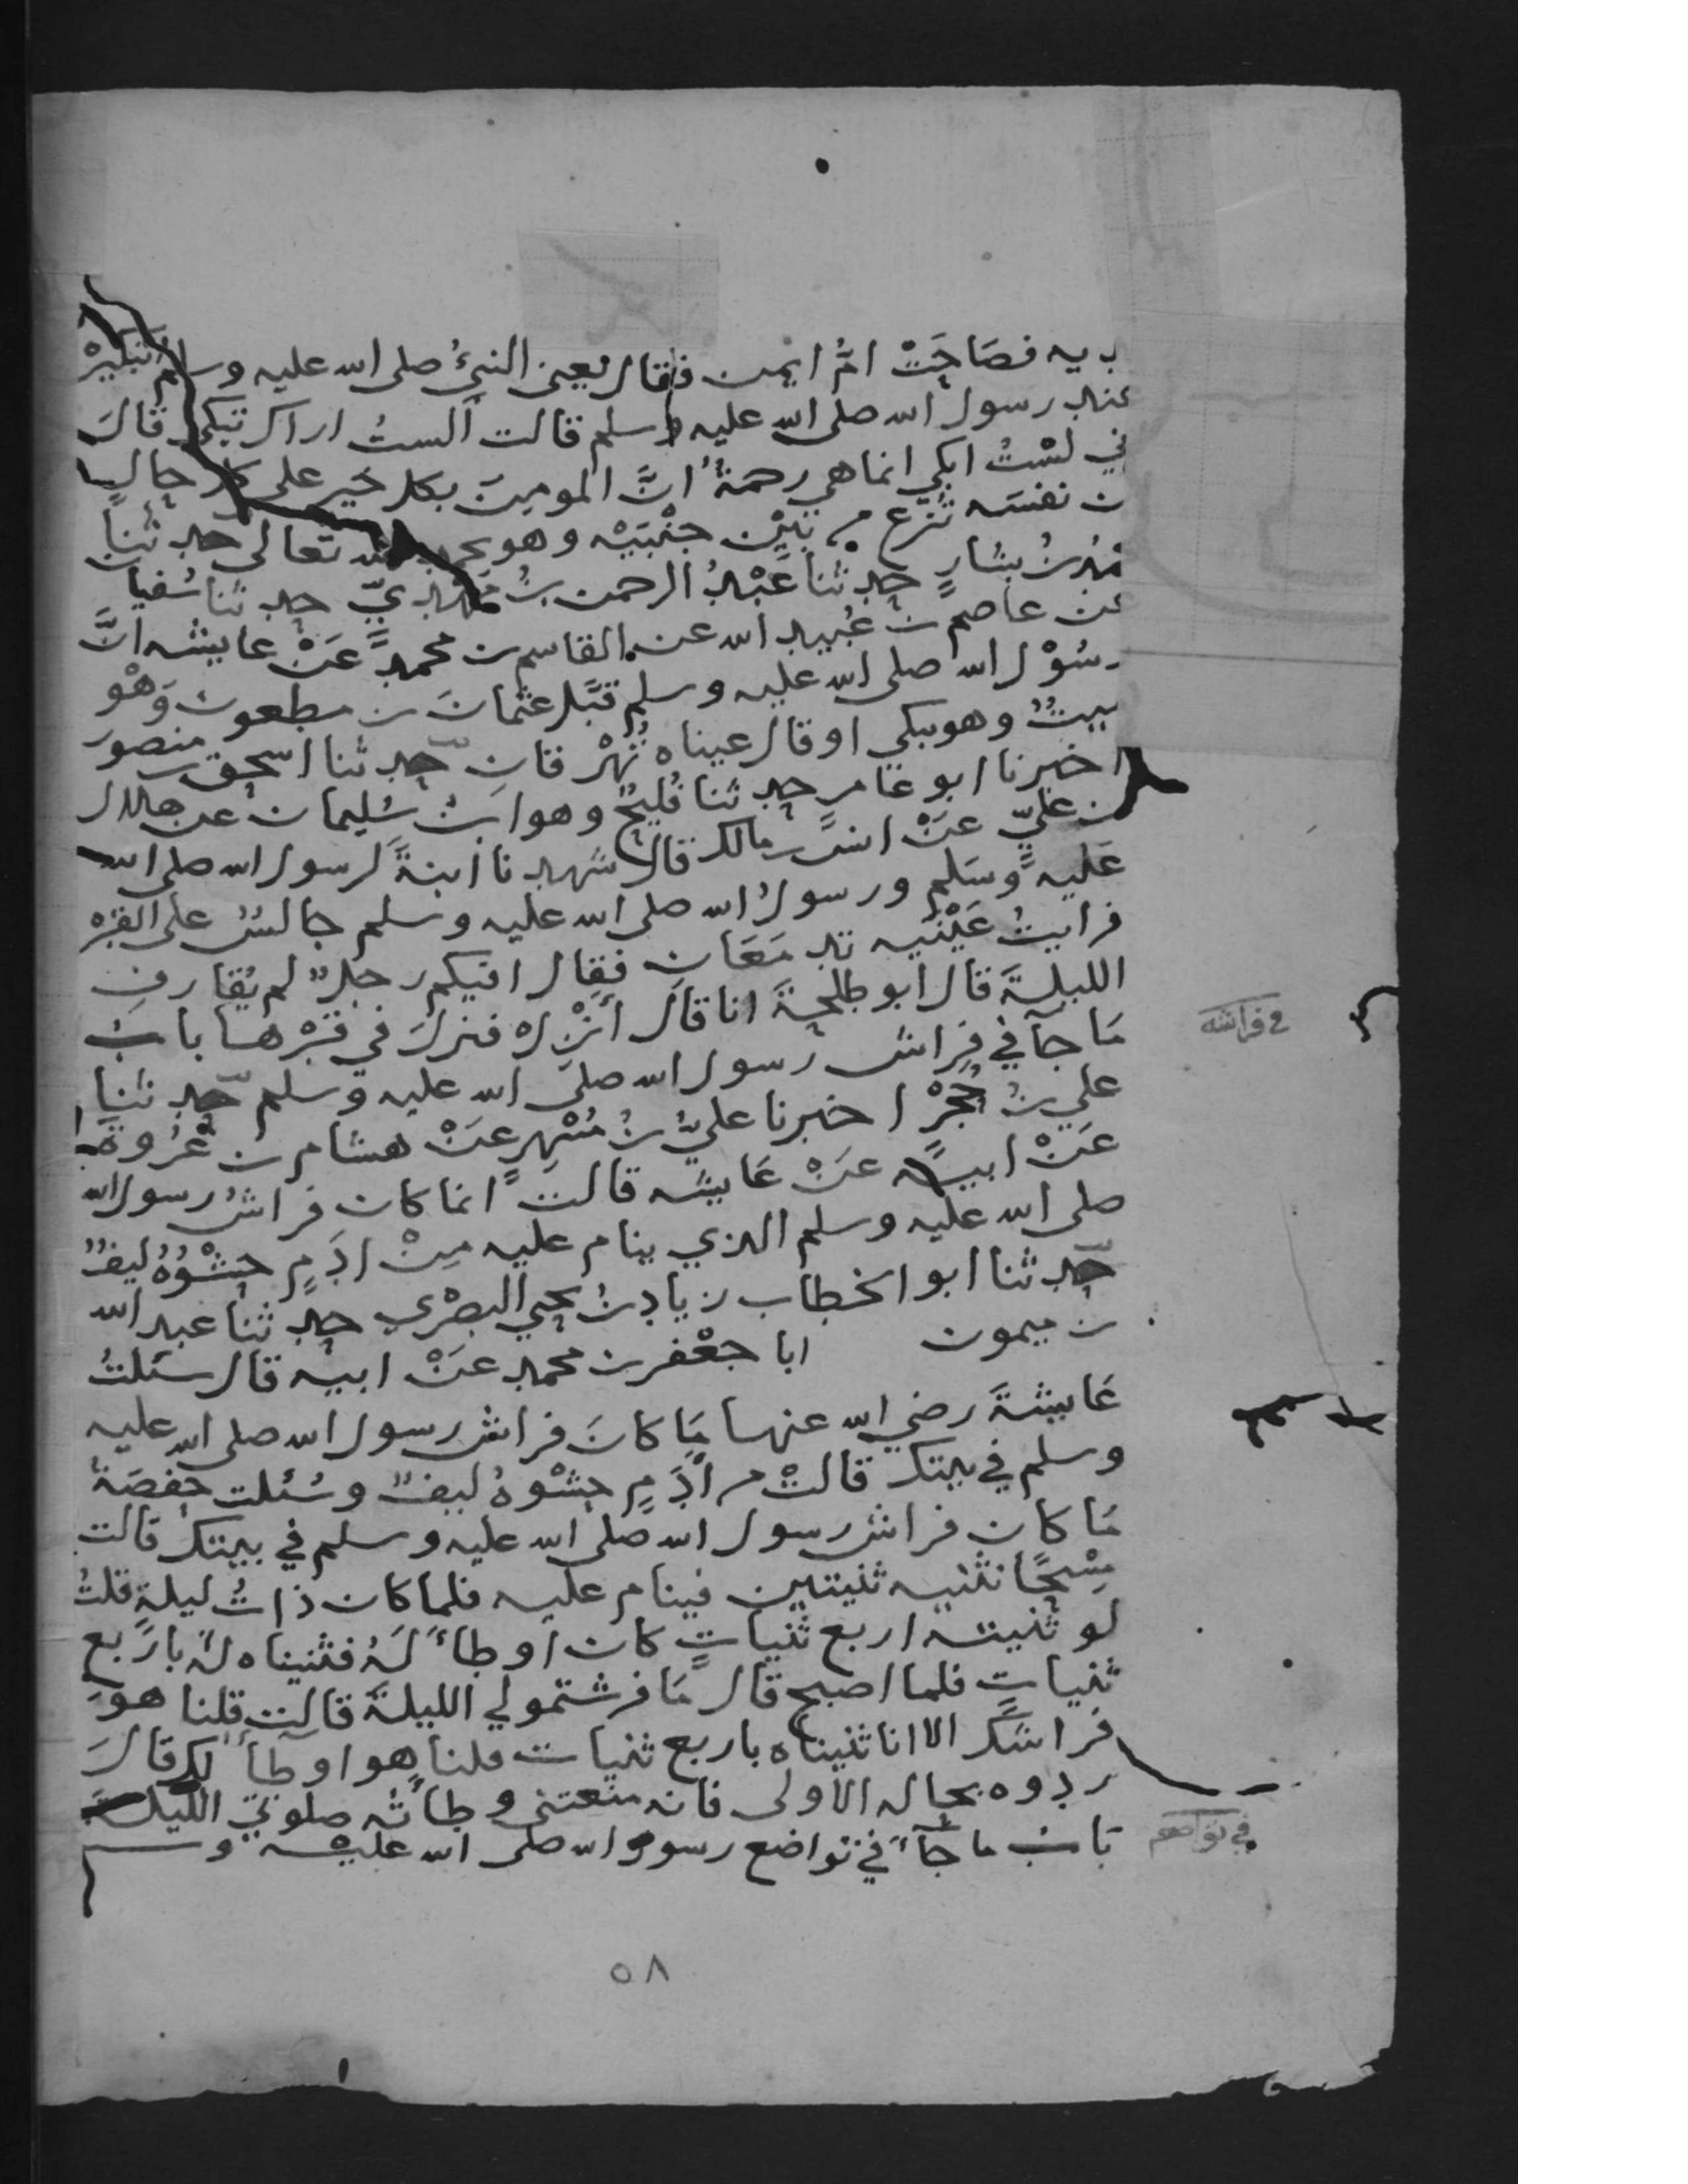 يديه فصَاحَتْ امُّ ايمن فقال يعني النبيُّ صلى الله عليه وسلم تبكين
عند رسول الله صلى الله عليه وسلم قالت الستُ اراك تبكي قال
ني لسْتُ ابكي انما هي رحمةٌ انَّ المومن بكل خير على كل حال
ن نفسَه تنزع من بَيْن جنْبَيْه وهو يحمد الله تعالى حدثنا
محمد بن بشارٍ حدثنا عَبْدُ الرحمن بنُ مَهْدِيّ حدثنا سُفيا
عن عاصم بن عُبيد الله عن القاسم بن محمدٍ عَنْ عايشه انَّ
رسُوْل الله صلى الله عليه وسلم قبَّل عثمان بن مظعون وَهْو
ميتٌ وهو يبكي او قال عيناه تُهْرقان حدثنا اسحق بن منصور
اخبرنا ابو عامر حدثنا فُليحٌ وهو ابنُ سُليمان عن هلال
بن عليّ عَنْ انسٍ بن مالك قال شهدنا ابنةً لرسول الله صلى الله
عَليه وسَلم ورسولُ الله صلى الله عليه وسلم جالسٌ على القبْر
فرايتُ عَيْنَيه تدمَعَان فقال افيكم رجلٌ لم يُقارف
الليلة قال ابو طلحة انا قال انْزل فنزل في قبْرها بابُ
مَا جآ في فِراش رسول الله صلى الله عليه وسلم حدثنا
علي بنُ حُجْرٍ اخبرنا عليُّ بنُ مُسْهِرٍ عَنْ هشام بن عُرْوة
عَنْ ابيه عَنْ عَايشه قالت انما كان فراشُ رسول الله
صلى الله عليه وسلم الذي ينام عليه مِنْ ادَمٍ حَشْوُهُ ليفٌ
حدثنا ابو الخطاب زيادُ بنُ يحيى البصْري حدثنا عبد الله
بن ميمون ابا جعْفر بن محمد عَنْ ابيه قال سئلتُ
عَايشةَ رضي الله عنها مَا كانَ فراش رسول الله صلى الله عليه
وسلم في بيتك قالتْ من اَدَمٍ حَشْوهُ ليفٌ وسُئلت حفصَة
مَا كان فراش رسول الله صلى الله عليه وسلم في بيتك قالت
مِسْحًا نثنيه ثنيتين فينام عليه فلما كان ذاتُ ليلةٍ قلتُ
لو ثنيته اربع ثنياتٍ كان اوطاً لَهُ فثنيناه له باربع
ثنياتٍ فلما اصبح قال مَا فرشتمو لي الليلة قالت قلنا هو
فراشك الا انا ثنيناه باربع ثنيات قلنا هو اوطأ لك قالَ
ردوه بحاله الاولى فانه منعتني وطأته صلوتي الليلة
بَابُ ما جآ في تواضع رسول الله صلى الله عليه وسلم
في فراشه
في تواضعه
٥٨